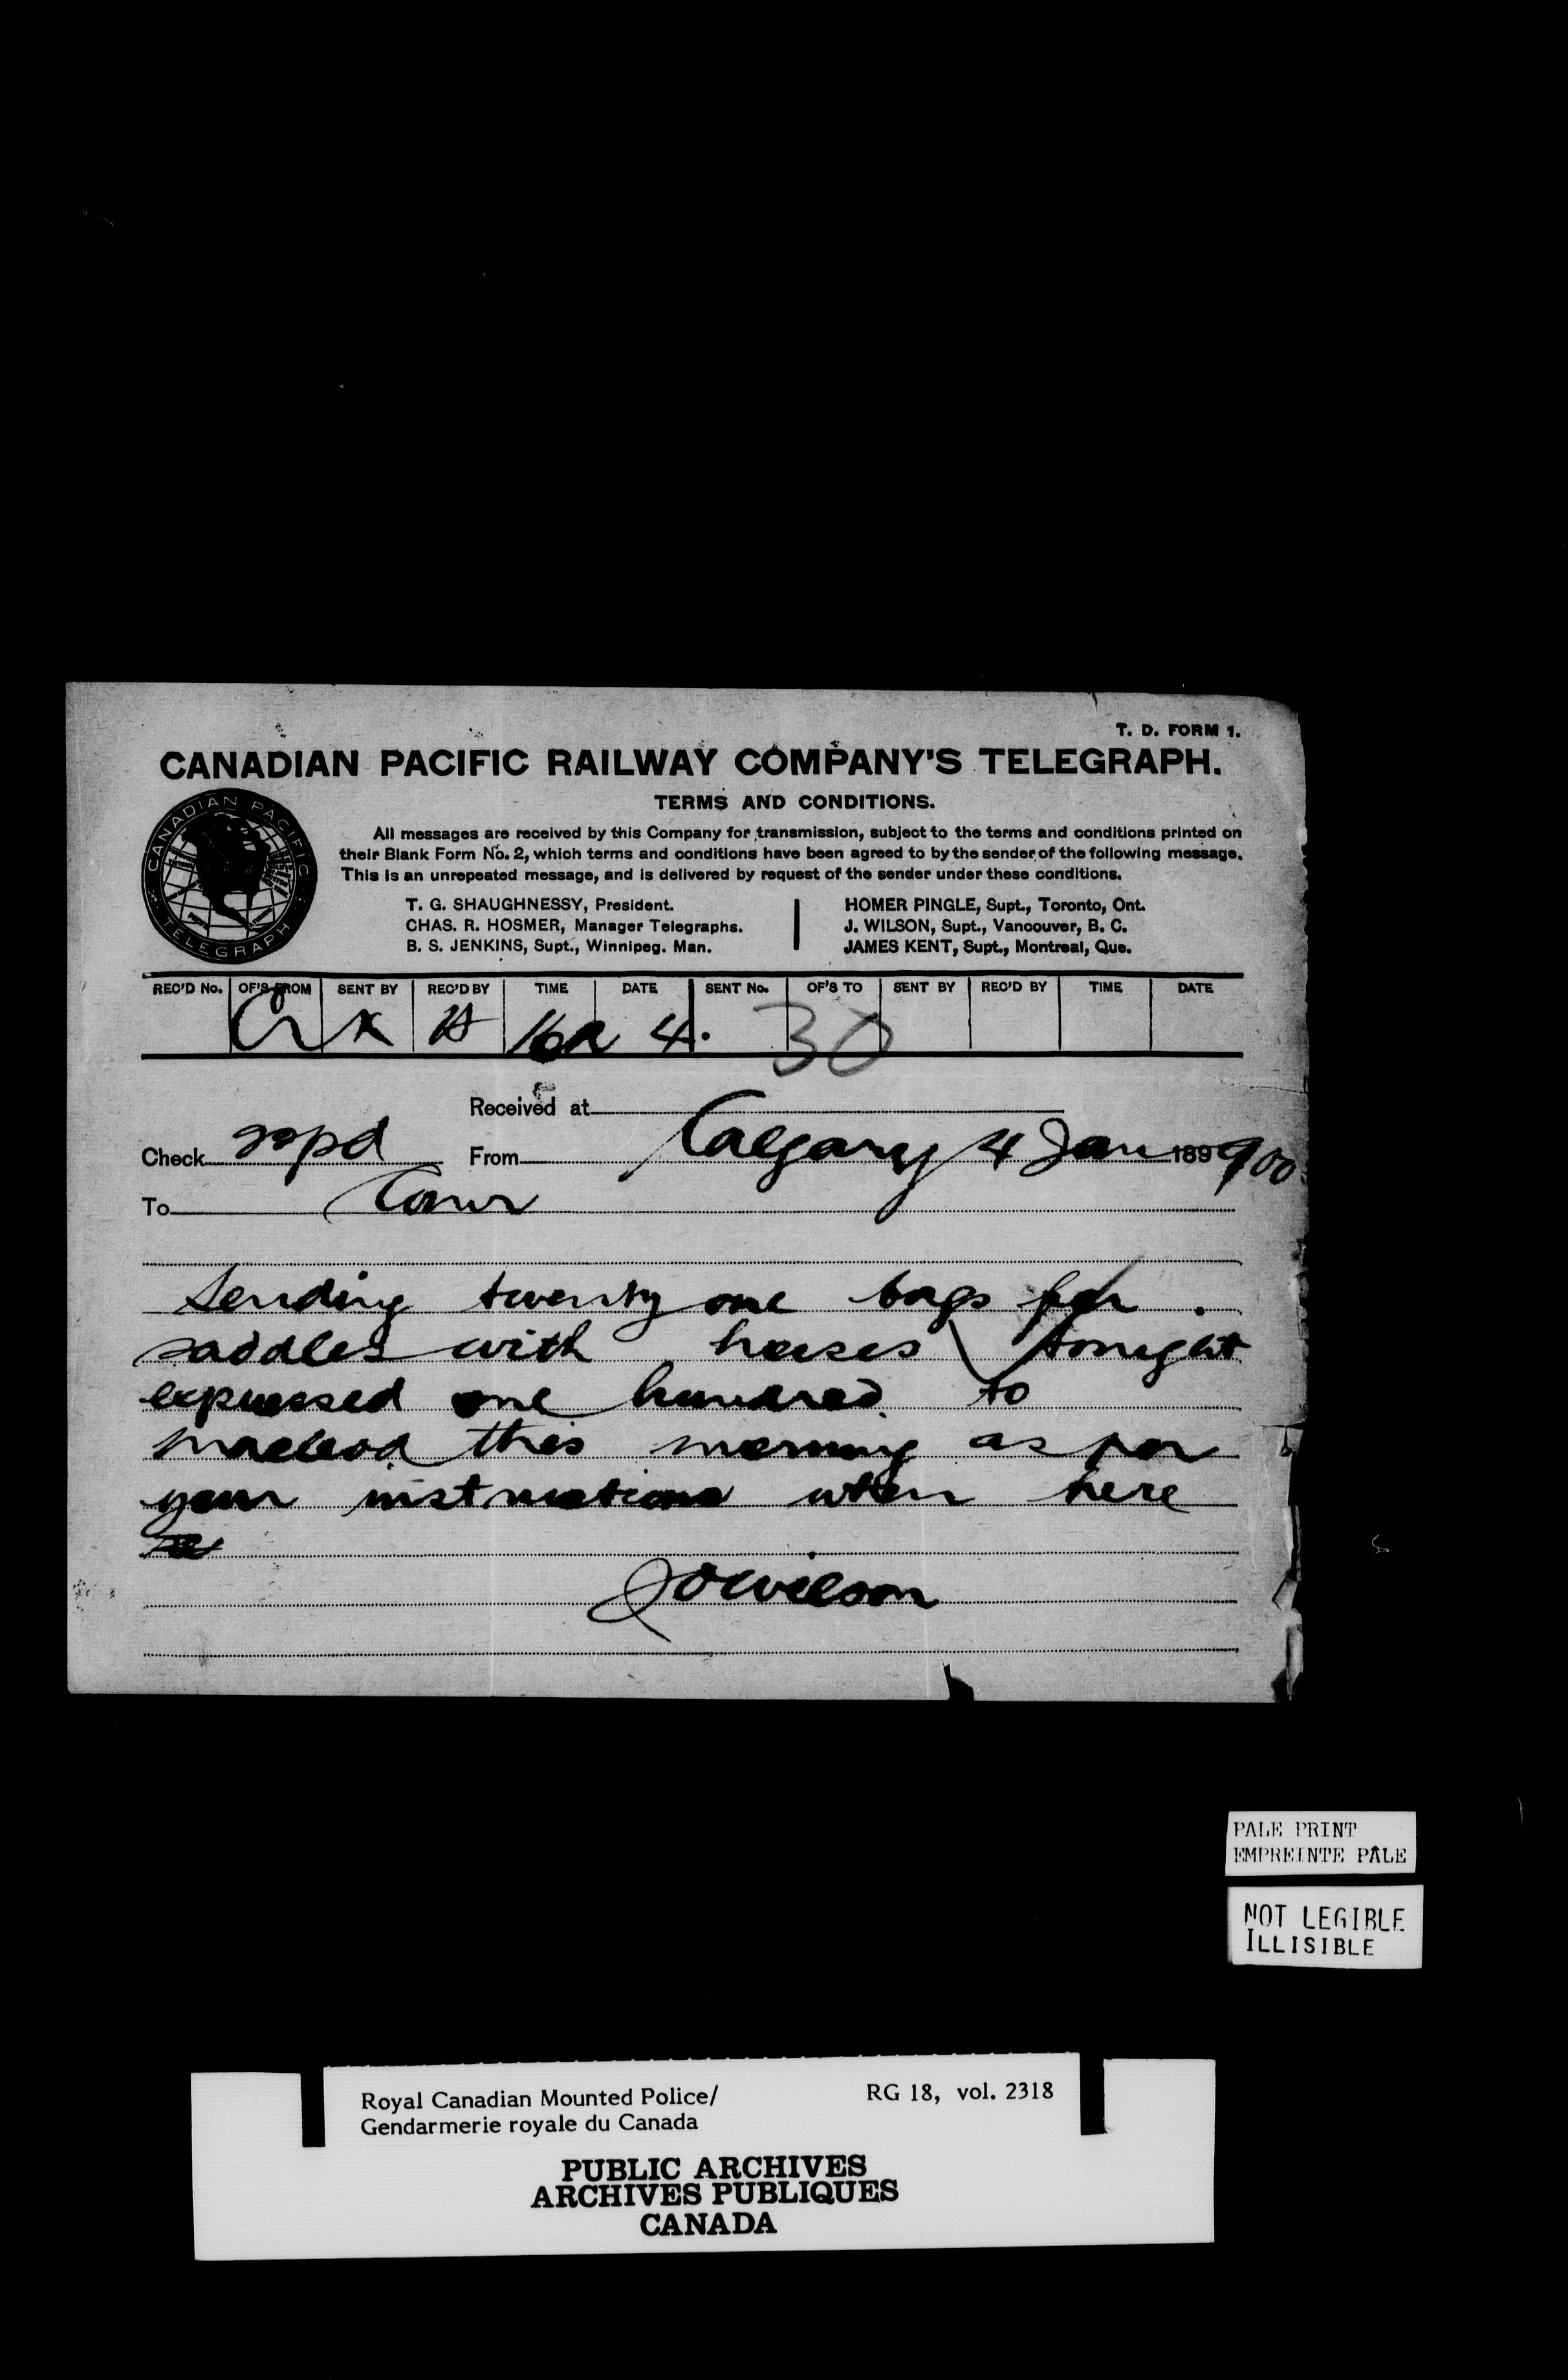 T. D. FORM 1.
CANADIAN PACIFIC RAILWAY COMPANY'S TELEGRAPH.
TERMS AND CONDITIONS.
CANADIAN PACIFIC
TELEGRAPH
All messages are received by this Company for transmission, subject to the terms and conditions printed on
their Blank Form No. 2, which terms and conditions have been agreed to by the sender of the following message.
This is an unrepeated message, and is delivered by request of the sender under these conditions.
T. G. SHAUGHNESSY, President.
CHAS. R. HOSMER, Manager Telegraphs.
B. S. JENKINS, Supt., Winnipeg. Man.
HOMER PINGLE, Supt., Toronto, Ont.
J. WILSON, Supt., Vancouver, B. C.
JAMES KENT, Supt., Montreal, Que.
REC'D No. OF'S FROM SENT BY REC'D BY TIME DATE SENT No. OF'S TO SENT BY REC'D BY TIME DATE
X 4. 30
Received at
Check pd From Calgary 4 Jan 189 900
To Comr
Sending twenty one bags for
saddles with horses tonight
expressed one hundred to
macleod this morning as per
your instructions when here
JO Wilson
PALE PRINT
EMPREINTE PÂLE
NOT LEGIBLE
ILLISIBLE
Royal Canadian Mounted Police/ RG 18, vol. 2318
Gendarmerie royale du Canada
PUBLIC ARCHIVES
ARCHIVES PUBLIQUES
CANADA